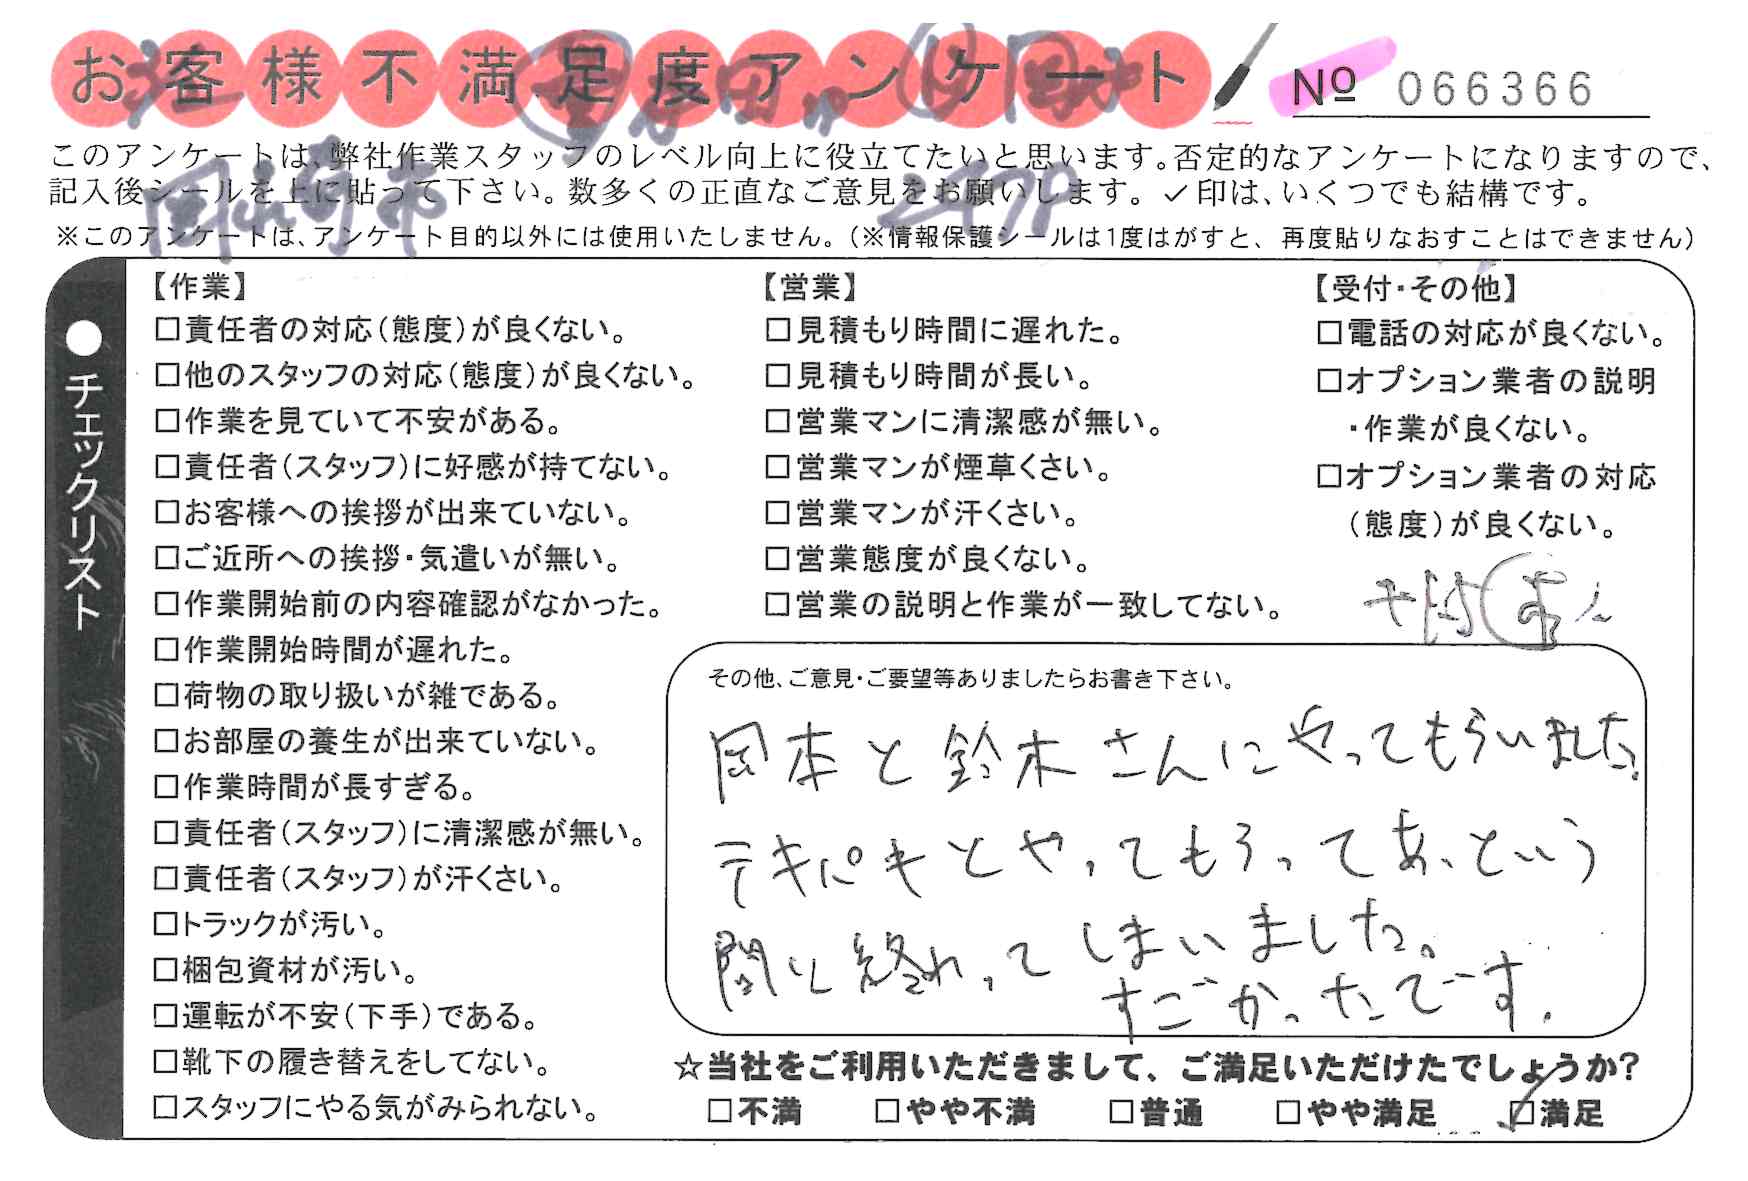 お客様不満足度アンケート
№ 066366
このアンケートは、弊社作業スタッフのレベル向上に役立てたいと思います。否定的なアンケートになりますので、
記入後シールを上に貼って下さい。数多くの正直なご意見をお願いします。✓印は、いくつでも結構です。
※このアンケートは、アンケート目的以外には使用いたしません。（※情報保護シールは1度はがすと、再度貼りなおすことはできません）
●チェックリスト
【作業】
□責任者の対応（態度）が良くない。
□他のスタッフの対応（態度）が良くない。
□作業を見ていて不安がある。
□責任者（スタッフ）に好感が持てない。
□お客様への挨拶が出来ていない。
□ご近所への挨拶・気遣いが無い。
□作業開始前の内容確認がなかった。
□作業開始時間が遅れた。
□荷物の取り扱いが雑である。
□お部屋の養生が出来ていない。
□作業時間が長すぎる。
□責任者（スタッフ）に清潔感が無い。
□責任者（スタッフ）が汗くさい。
□トラックが汚い。
□梱包資材が汚い。
□運転が不安（下手）である。
□靴下の履き替えをしてない。
□スタッフにやる気がみられない。
【営業】
□見積もり時間に遅れた。
□見積もり時間が長い。
□営業マンに清潔感が無い。
□営業マンが煙草くさい。
□営業マンが汗くさい。
□営業態度が良くない。
□営業の説明と作業が一致してない。
【受付・その他】
□電話の対応が良くない。
□オプション業者の説明
・作業が良くない。
□オプション業者の対応
（態度）が良くない。
その他、ご意見・ご要望等ありましたらお書き下さい。
岡本と鈴木さんにやってもらいました。
テキパキとやってもらってあっという
間に終わってしまいました。
すごかったです。
☆当社をご利用いただきまして、ご満足いただけたでしょうか？
□不満 □やや不満 □普通 □やや満足 ☑満足